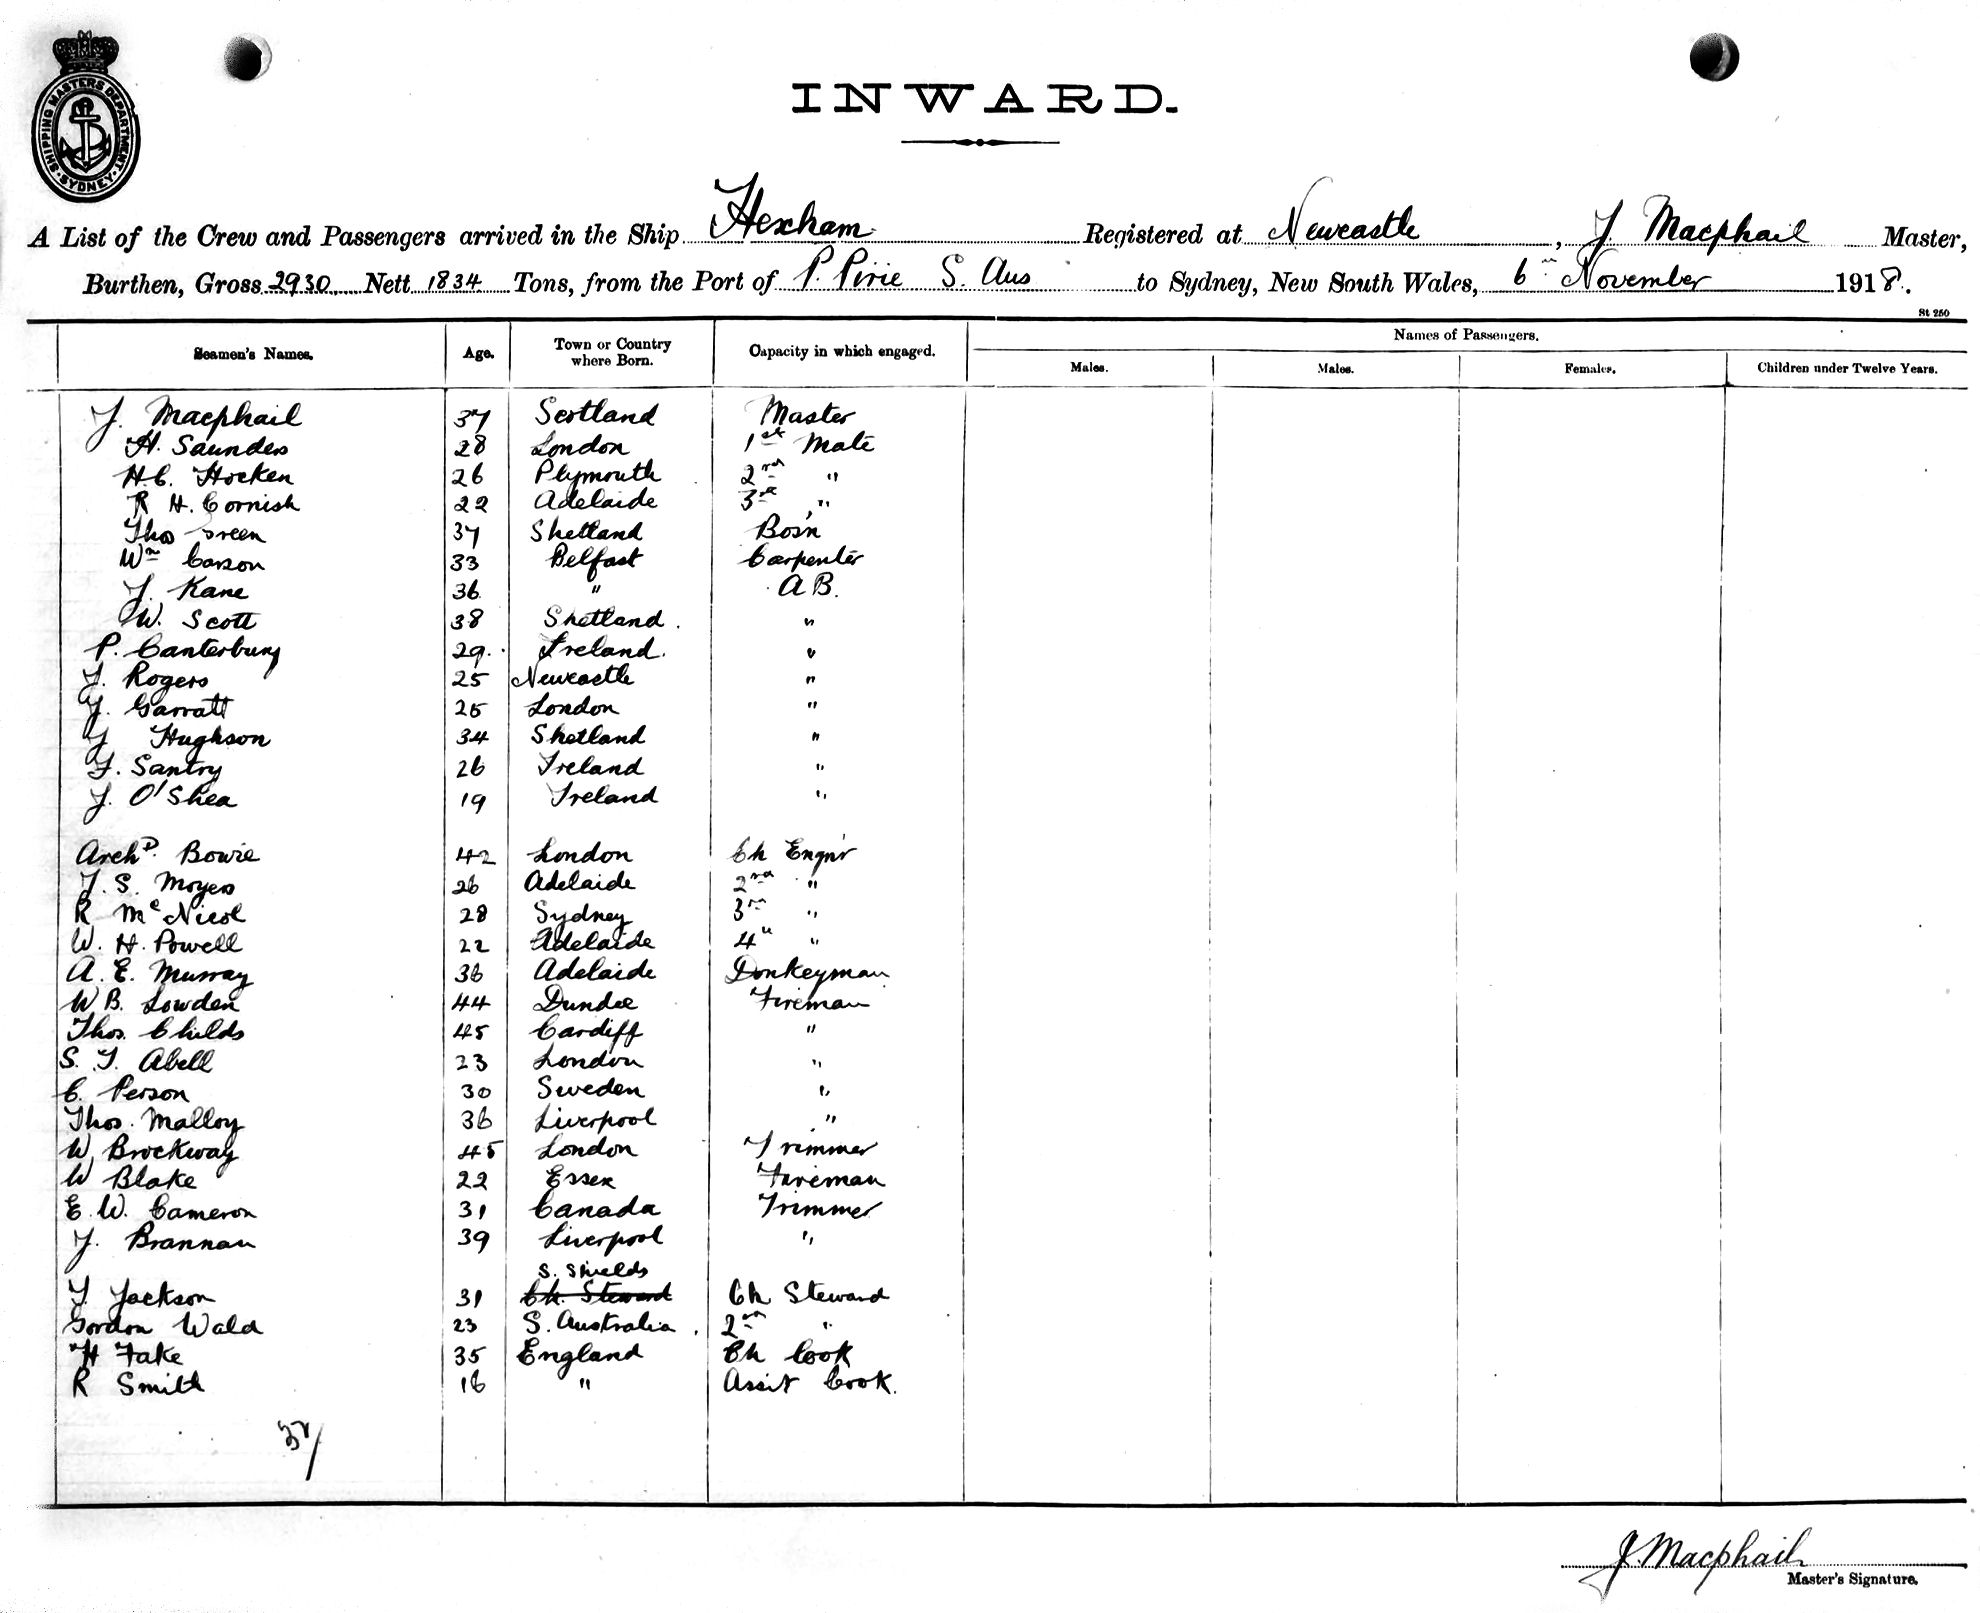 SHIPPING MASTERS DEPARTMENT
SYDNEY
INWARD.
A List of the Crew and Passengers arrived in the Ship Hexham Registered at Newcastle, J. Macphail Master,
Burthen, Gross 2930 Nett 1834 Tons, from the Port of P. Pirie S. Aus to Sydney, New South Wales, 6th November 1918.
St 250
Seamen's Names. Age. Town or Country where Born. Capacity in which engaged. Names of Passengers.
Males. Males. Females. Children under Twelve Years.
J. Macphail 37 Scotland Master
H. Saunders 28 London 1st Mate
H.C. Hocken 26 Plymouth 2nd "
R H. Cornish 22 Adelaide 3rd "
Thos Green 37 Shetland Bos'n
Wm Carson 33 Belfast Carpenter
J. Kane 36 " A B.
W. Scott 38 Shetland. "
P. Canterbury 29. Ireland. "
J. Rogers 25 Newcastle "
J. Garratt 25 London "
J Hughson 34 Shetland "
J. Santry 26 Ireland "
J. O'Shea 19 Ireland "
Archd. Bowie 42 London Ch Engn'r
J. S. Moyes 26 Adelaide 2nd "
R McNicol 28 Sydney 3rd "
W. H. Powell 22 Adelaide 4th "
A. E. Murray 36 Adelaide Donkeyman
W B. Lowden 44 Dundee Fireman
Thos. Childs 45 Cardiff "
S. J. Abell 23 London "
C. Person 30 Sweden "
Thos. Malloy 36 Liverpool "
W Brockway 45 London Trimmer
W Blake 22 Essex Fireman
E. W. Cameron 31 Canada Trimmer
J. Brannan 39 Liverpool "
S. Shields
J. Jackson 31 Ch. Steward Ch Steward
Gordon Wald 23 S. Australia. 2nd "
H Fake 35 England Ch Cook
R Smith 16 " Assit Cook.
32/
J. Macphail
Master's Signature.